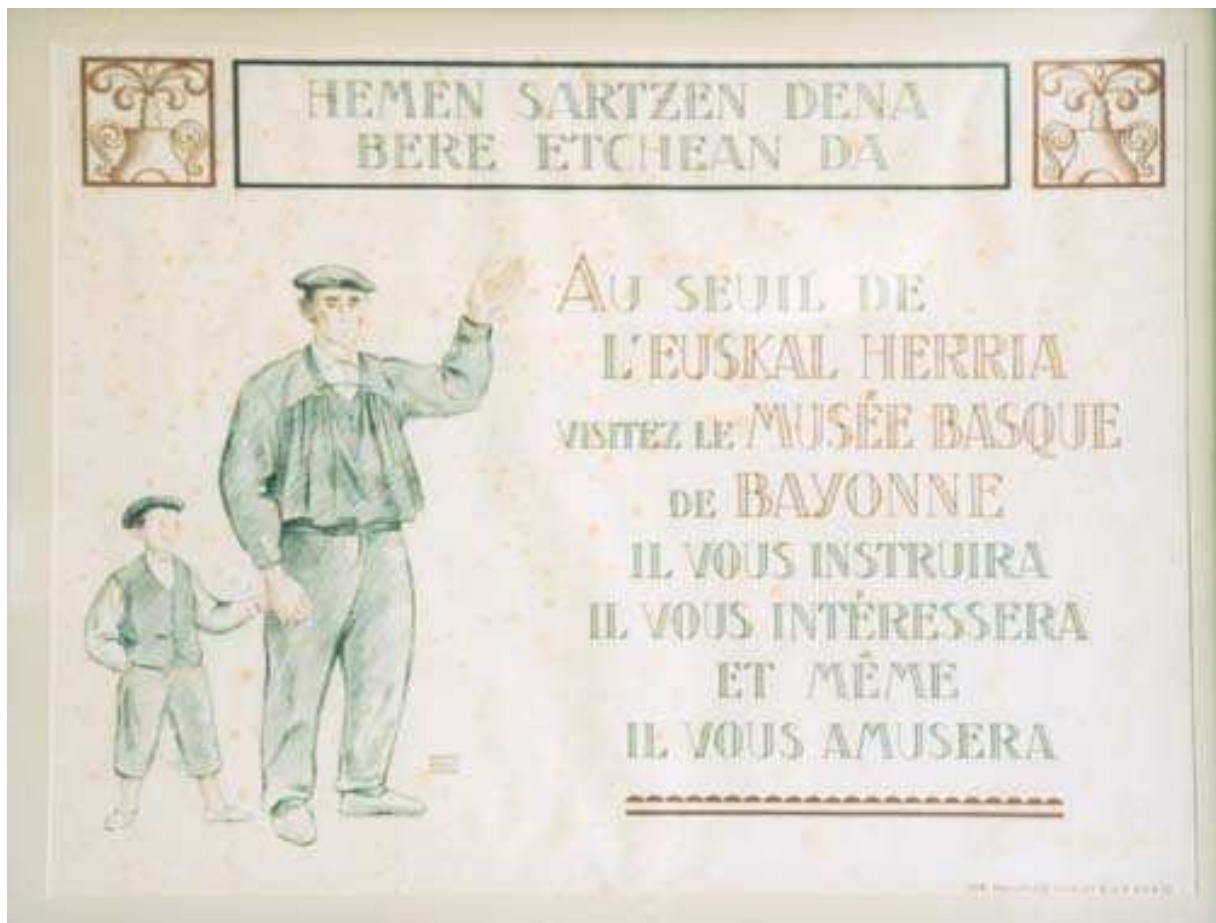 HEMEN SARTZEN DENA
BERE ETCHEAN DA
AU SEUIL DE
L'EUSKAL HERRIA
VISITEZ LE MUSÉE BASQUE
DE BAYONNE
IL VOUS INSTRUIRA
IL VOUS INTÉRESSERA
ET MÊME
IL VOUS AMUSERA